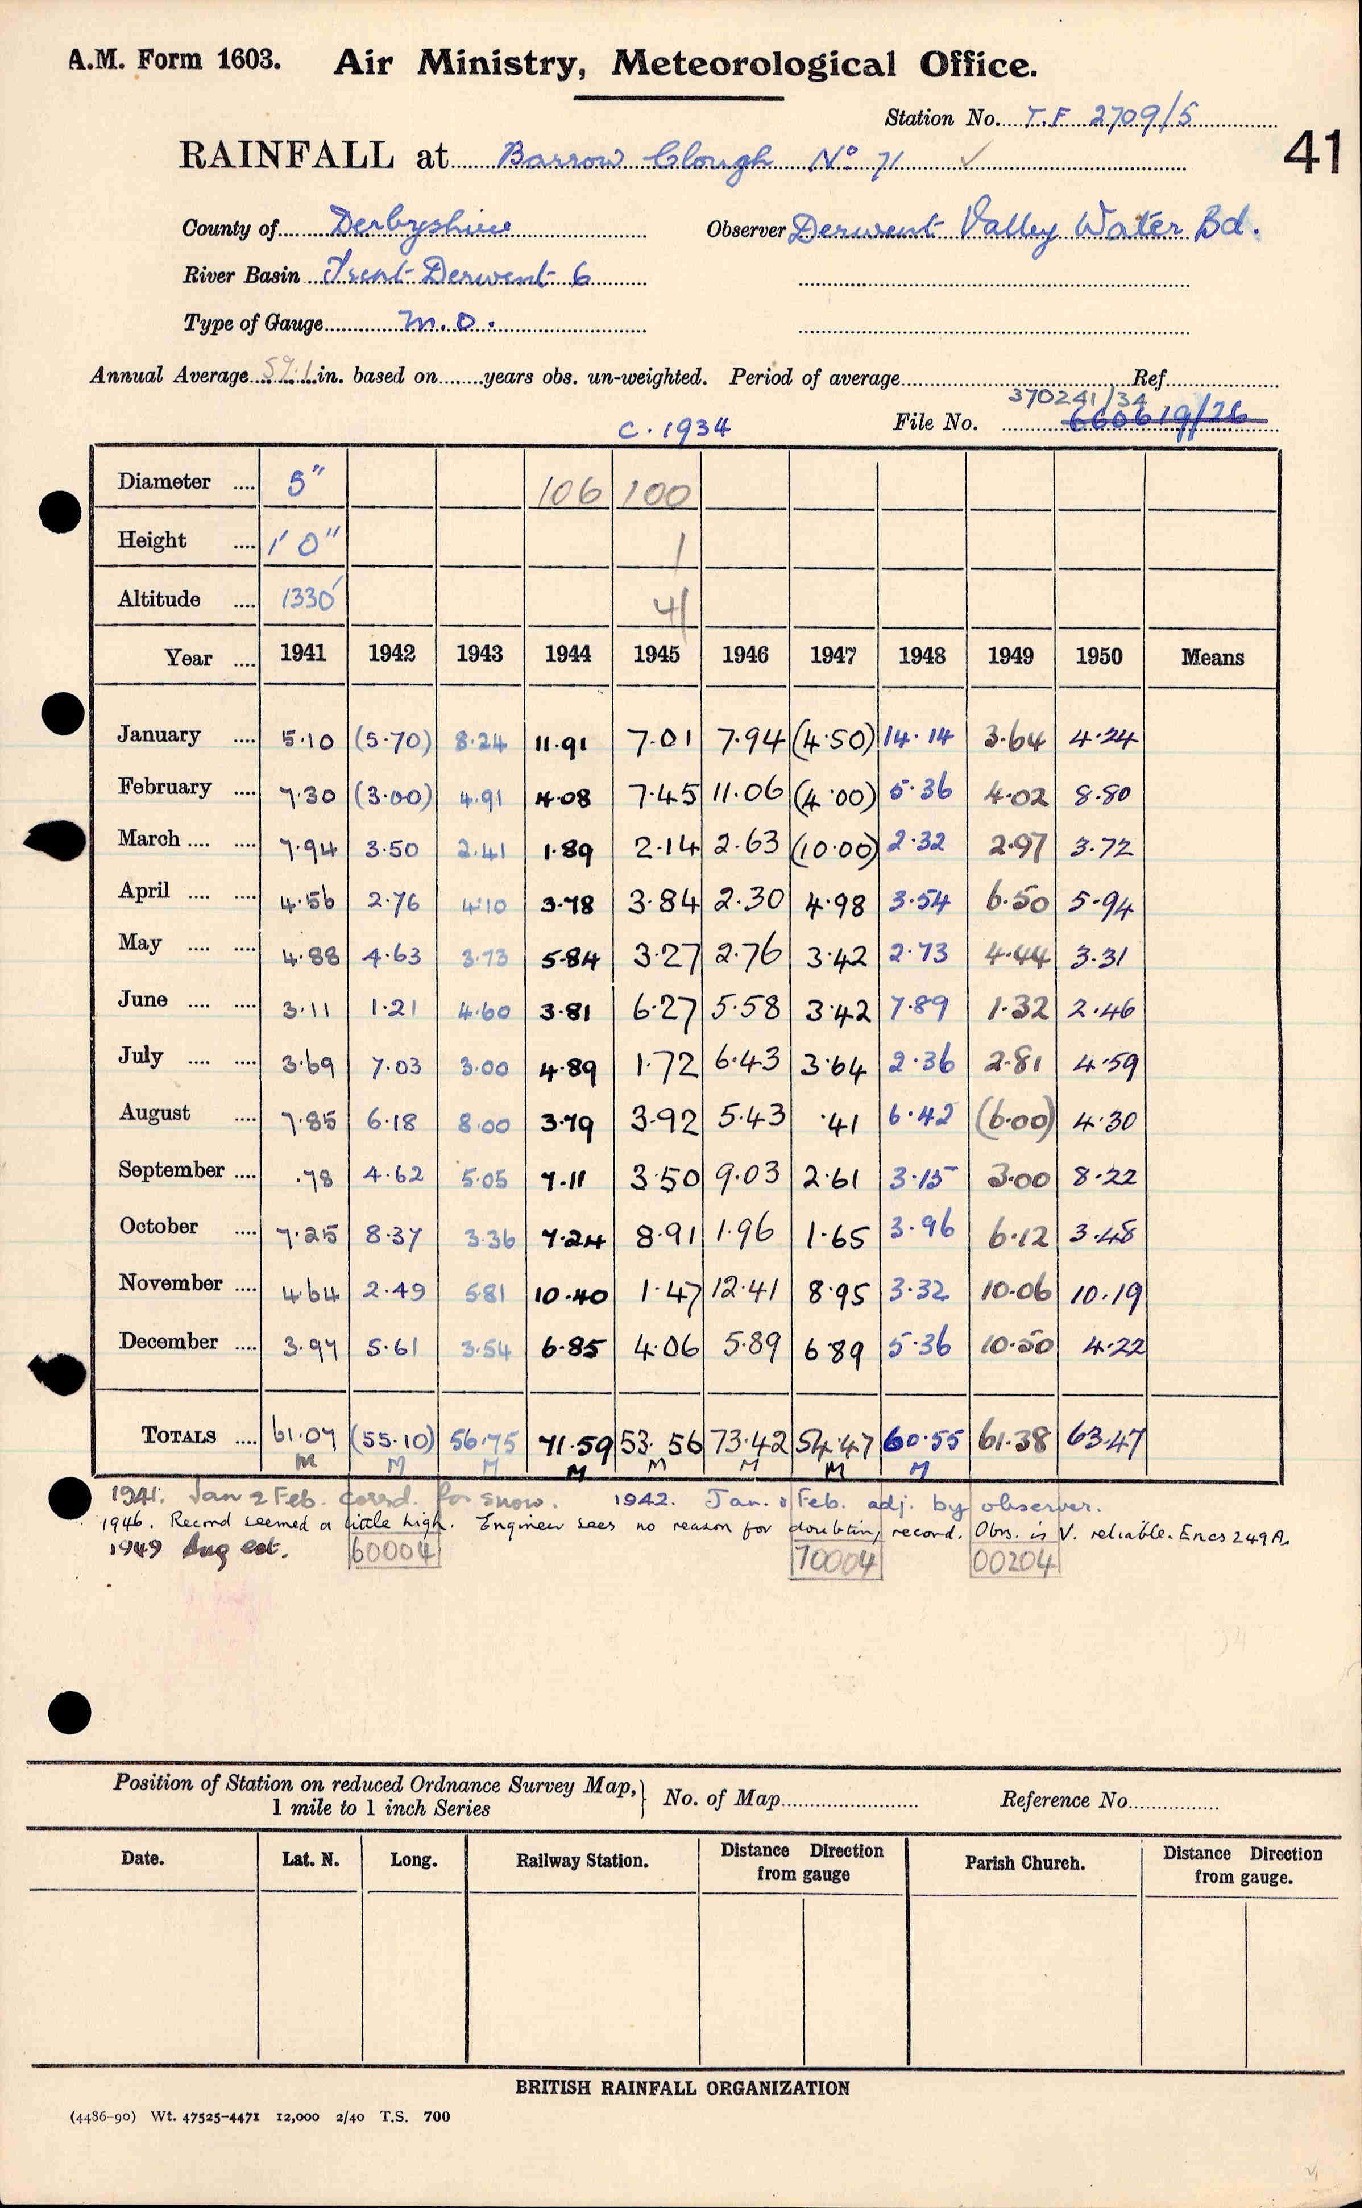 A.M. Form 1603. Air Ministry, Meteorological Office.
Station No. T.F 2709/5
RAINFALL at Barrow Clough No 71 ✓
41
County of Derbyshire Observer Derwent Valley Water Bd.
River Basin Trent-Derwent 6
Type of Gauge M.O.
Annual Average in. based on years obs. un-weighted. Period of average Ref.
370241/34
c. 1934 File No. 660619/26
Diameter 5" 106 100
Height 1' 0" 1
Altitude 1330' 41
Year 1941 1942 1943 1944 1945 1946 1947 1948 1949 1950 Means
January 5.10 (5.70) 8.24 11.91 7.01 7.94 (4.50) 14.14 3.64 4.24
February 7.30 (3.00) 4.91 4.08 7.45 11.06 (4.00) 5.36 4.02 8.80
March 7.94 3.50 2.41 1.89 2.14 2.63 (10.00) 2.32 2.97 3.72
April 4.56 2.76 4.10 3.78 3.84 2.30 4.98 3.54 6.50 5.94
May 4.88 4.63 3.73 5.84 3.27 2.76 3.42 2.73 4.44 3.31
June 3.11 1.21 4.60 3.81 6.27 5.58 3.42 7.89 1.32 2.46
July 3.69 7.03 3.00 4.89 1.72 6.43 3.64 2.36 2.81 4.59
August 7.85 6.18 8.00 3.79 3.92 5.43 .41 6.42 (6.00) 4.30
September .78 4.62 5.05 7.11 3.50 9.03 2.61 3.15 3.00 8.22
October 7.25 8.37 3.36 7.24 8.91 1.96 1.65 3.96 6.12 3.48
November 4.64 2.49 5.81 10.40 1.47 12.41 8.95 3.32 10.06 10.19
December 3.97 5.61 3.54 6.85 4.06 5.89 6.89 5.36 10.50 4.22
TOTALS 61.07 (55.10) 56.75 71.59 53.56 73.42 54.47 60.55 61.38 63.47
M M M M M M M M
1941. Jan & Feb. corrd. for snow. 1942. Jan. & Feb. adj. by observer.
1946. Record seemed a little high. Engineer sees no reason for doubting record. Obs. is V. reliable. Encs 249A.
1949 Aug est. 60004 70004 00204
Position of Station on reduced Ordnance Survey Map, 1 mile to 1 inch Series } No. of Map Reference No.
Date. Lat. N. Long. Railway Station. Distance Direction from gauge Parish Church. Distance Direction from gauge.
BRITISH RAINFALL ORGANIZATION
(4486-90) Wt. 47525-4471 12,000 2/40 T.S. 700